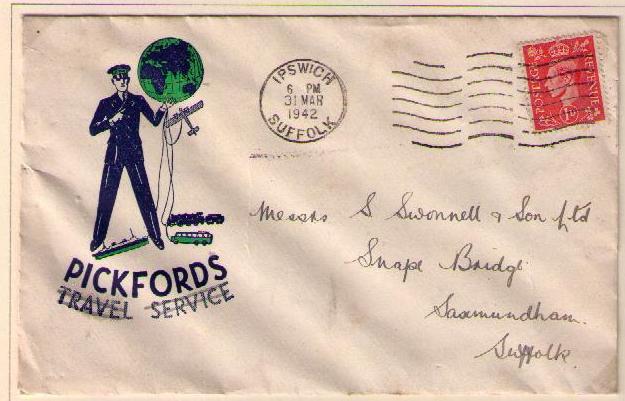 PICKFORDS
TRAVEL SERVICE
IPSWICH
6 PM
31 MAR
1942
SUFFOLK
POSTAGE REVENUE
1D
Messrs S Swonnell & Son Ltd
Snape Bridge
Saxmundham.
Suffolk.